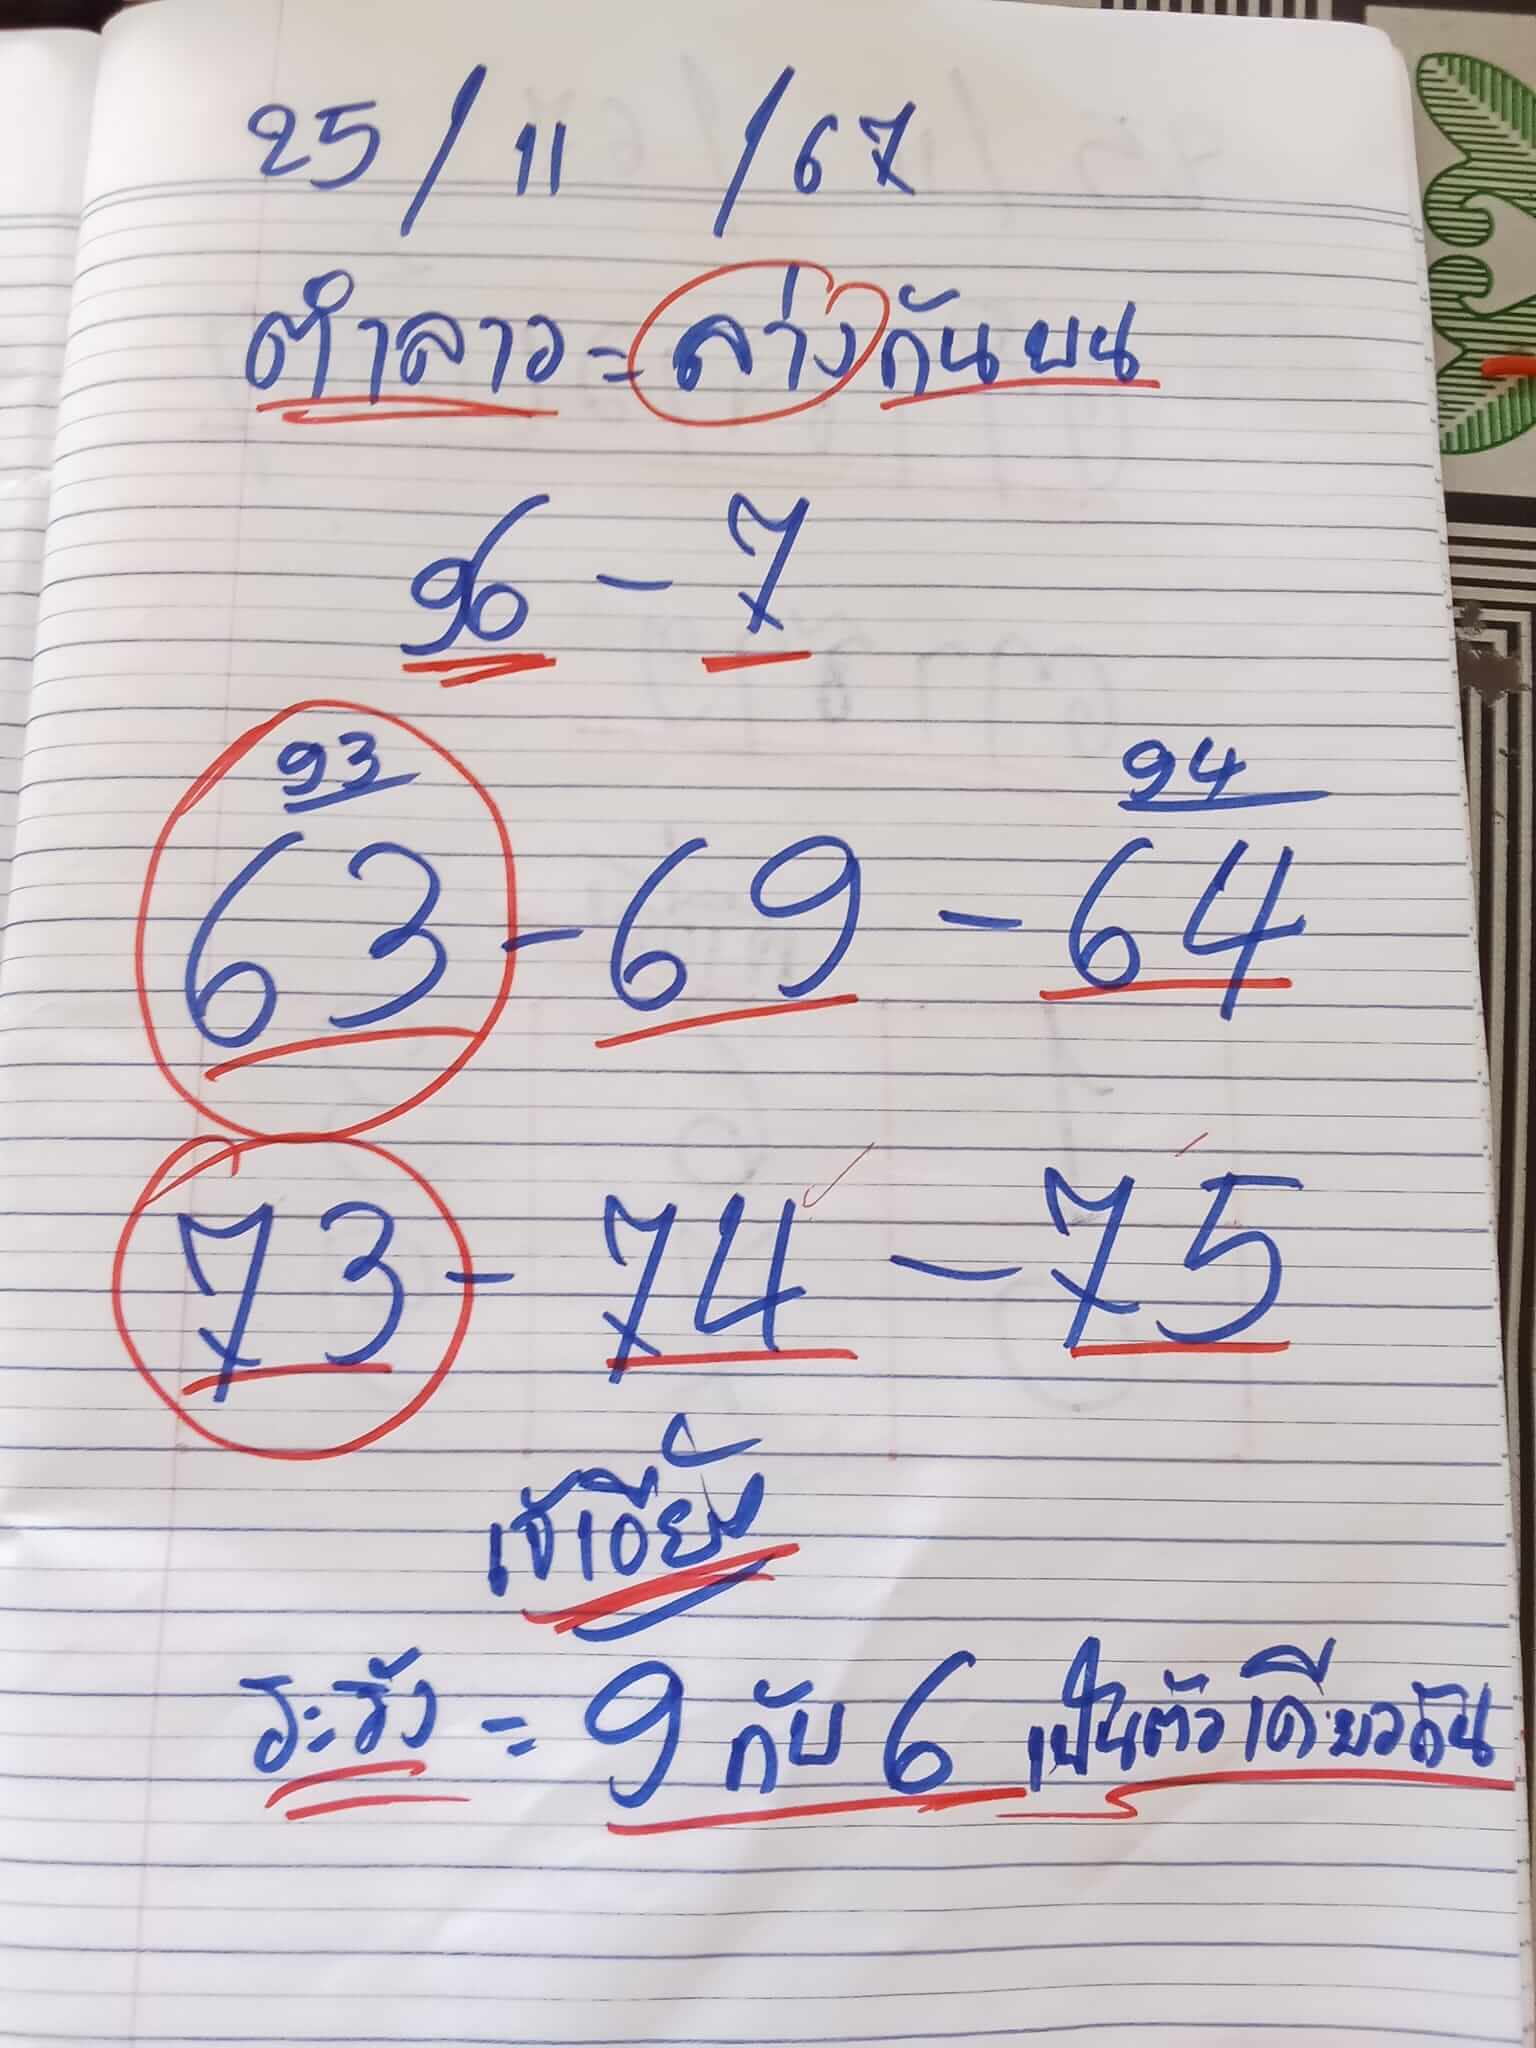 25/11/67
ตำลาว = ล่างกันบน
96 - 7
93 94
63 - 69 - 64
73 - 74 - 75
ระวัง = 9 กับ 6 เป็นตัวเดียวกัน